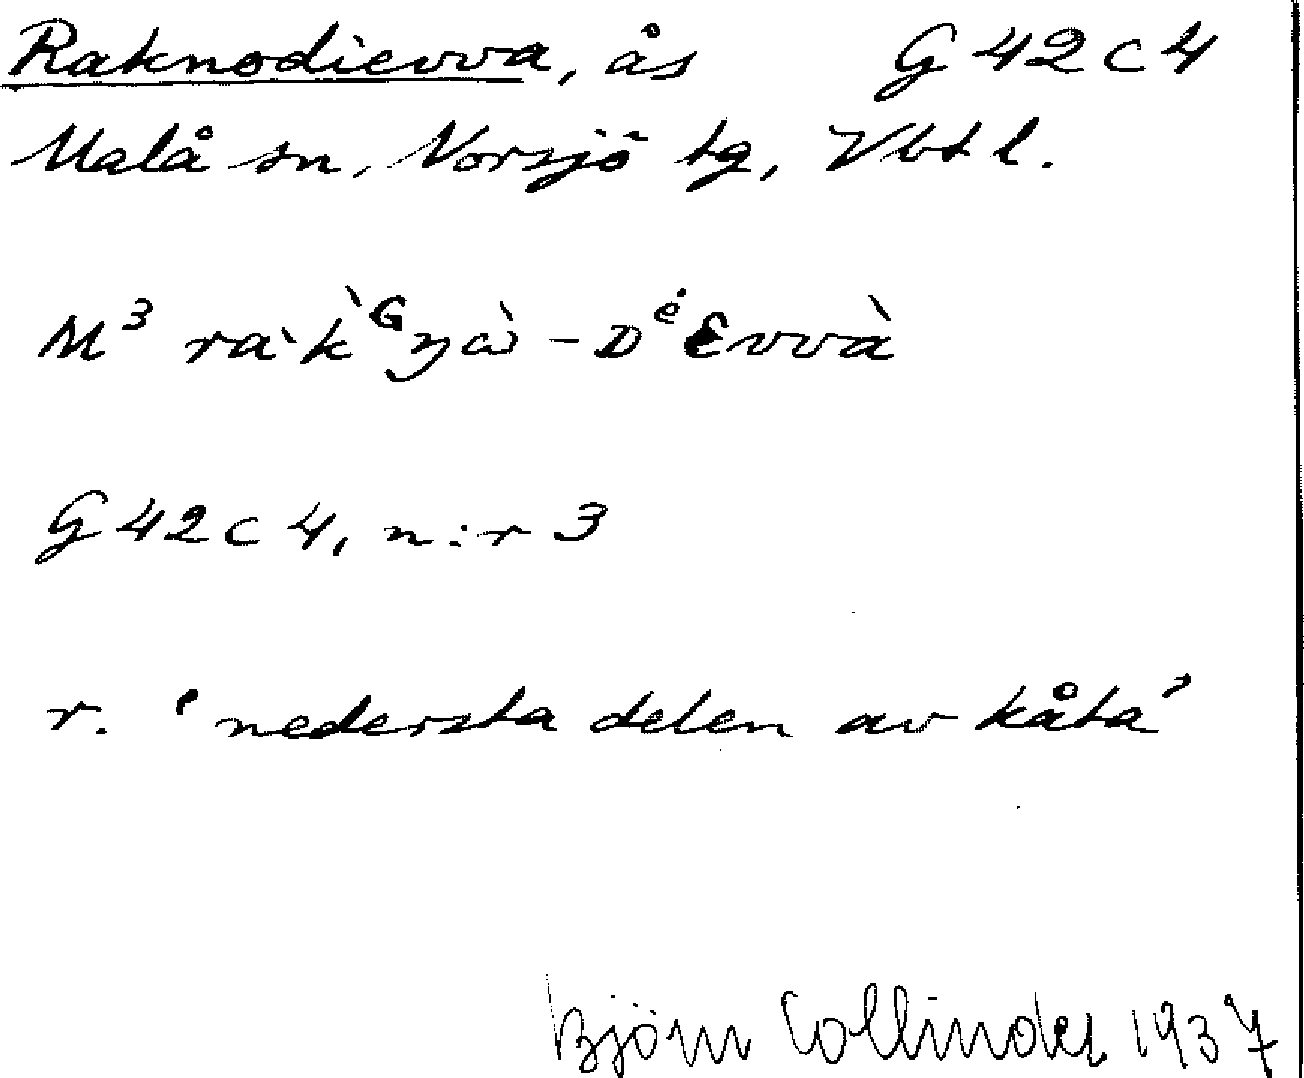 Raknodievva, ås G 42 c 4
Malå sn, Norsjö tg, Vbt l.
M³ ra·k̀ᴳŋὰ - Dᵉ́ɛvvὰ
G 42 c 4, n:r 3
r. 'nedersta delen av kåta'
Björn Collinder 1937